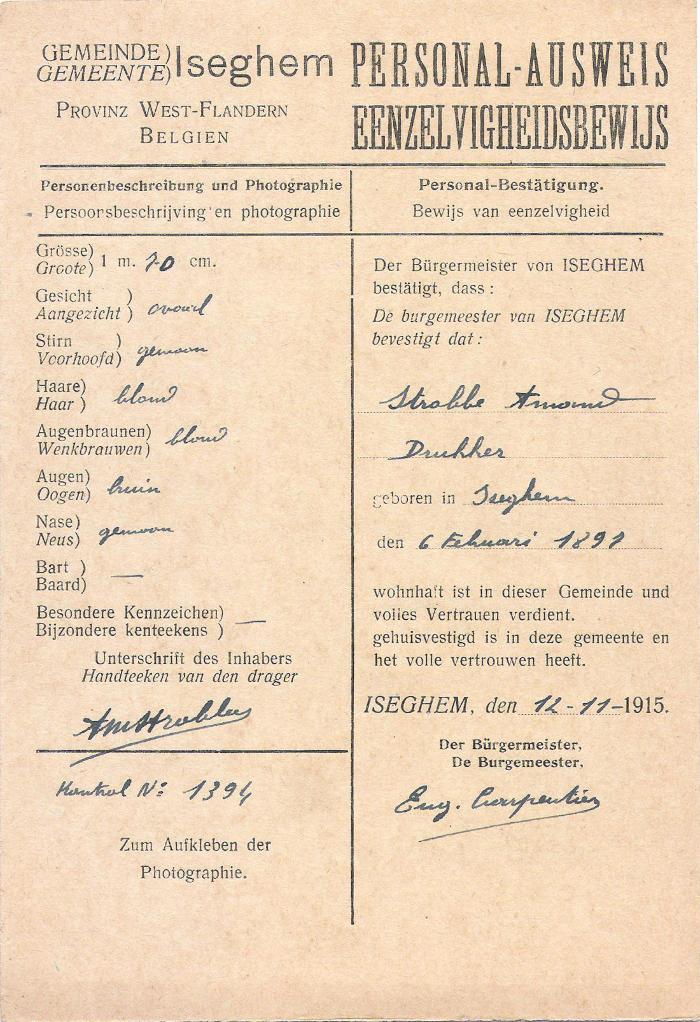 GEMEINDE)
GEMEENTE) Iseghem
PROVINZ WEST-FLANDERN
BELGIEN
PERSONAL-AUSWEIS
EENZELVIGHEIDSBEWIJS
Personenbeschreibung und Photographie
Persoonsbeschrijving en photographie
Grösse)
Groote) 1 m. 70 cm.
Gesicht )
Aangezicht ) ovaal
Stirn )
Voorhoofd) gewoon
Haare)
Haar ) blond
Augenbraunen)
Wenkbrauwen) blond
Augen)
Oogen) bruin
Nase)
Neus) gewoon
Bart )
Baard) —
Besondere Kennzeichen)
Bijzondere kenteekens ) —
Unterschrift des Inhabers
Handteeken van den drager
AmStrobbe
Kontrol No: 1394
Zum Aufkleben der
Photographie.
Personal-Bestätigung.
Bewijs van eenzelvigheid
Der Bürgermeister von ISEGHEM
bestätigt, dass :
De burgemeester van ISEGHEM
bevestigt dat :
Strobbe Amand
Drukker
geboren in Iseghem
den 6 Februari
wohnhaft ist in dieser Gemeinde und
volles Vertrauen verdient.
gehuisvestigd is in deze gemeente en
het volle vertrouwen heeft.
ISEGHEM, den 12-11-1915.
Der Bürgermeister,
De Burgemeester,
Eug. Carpentier